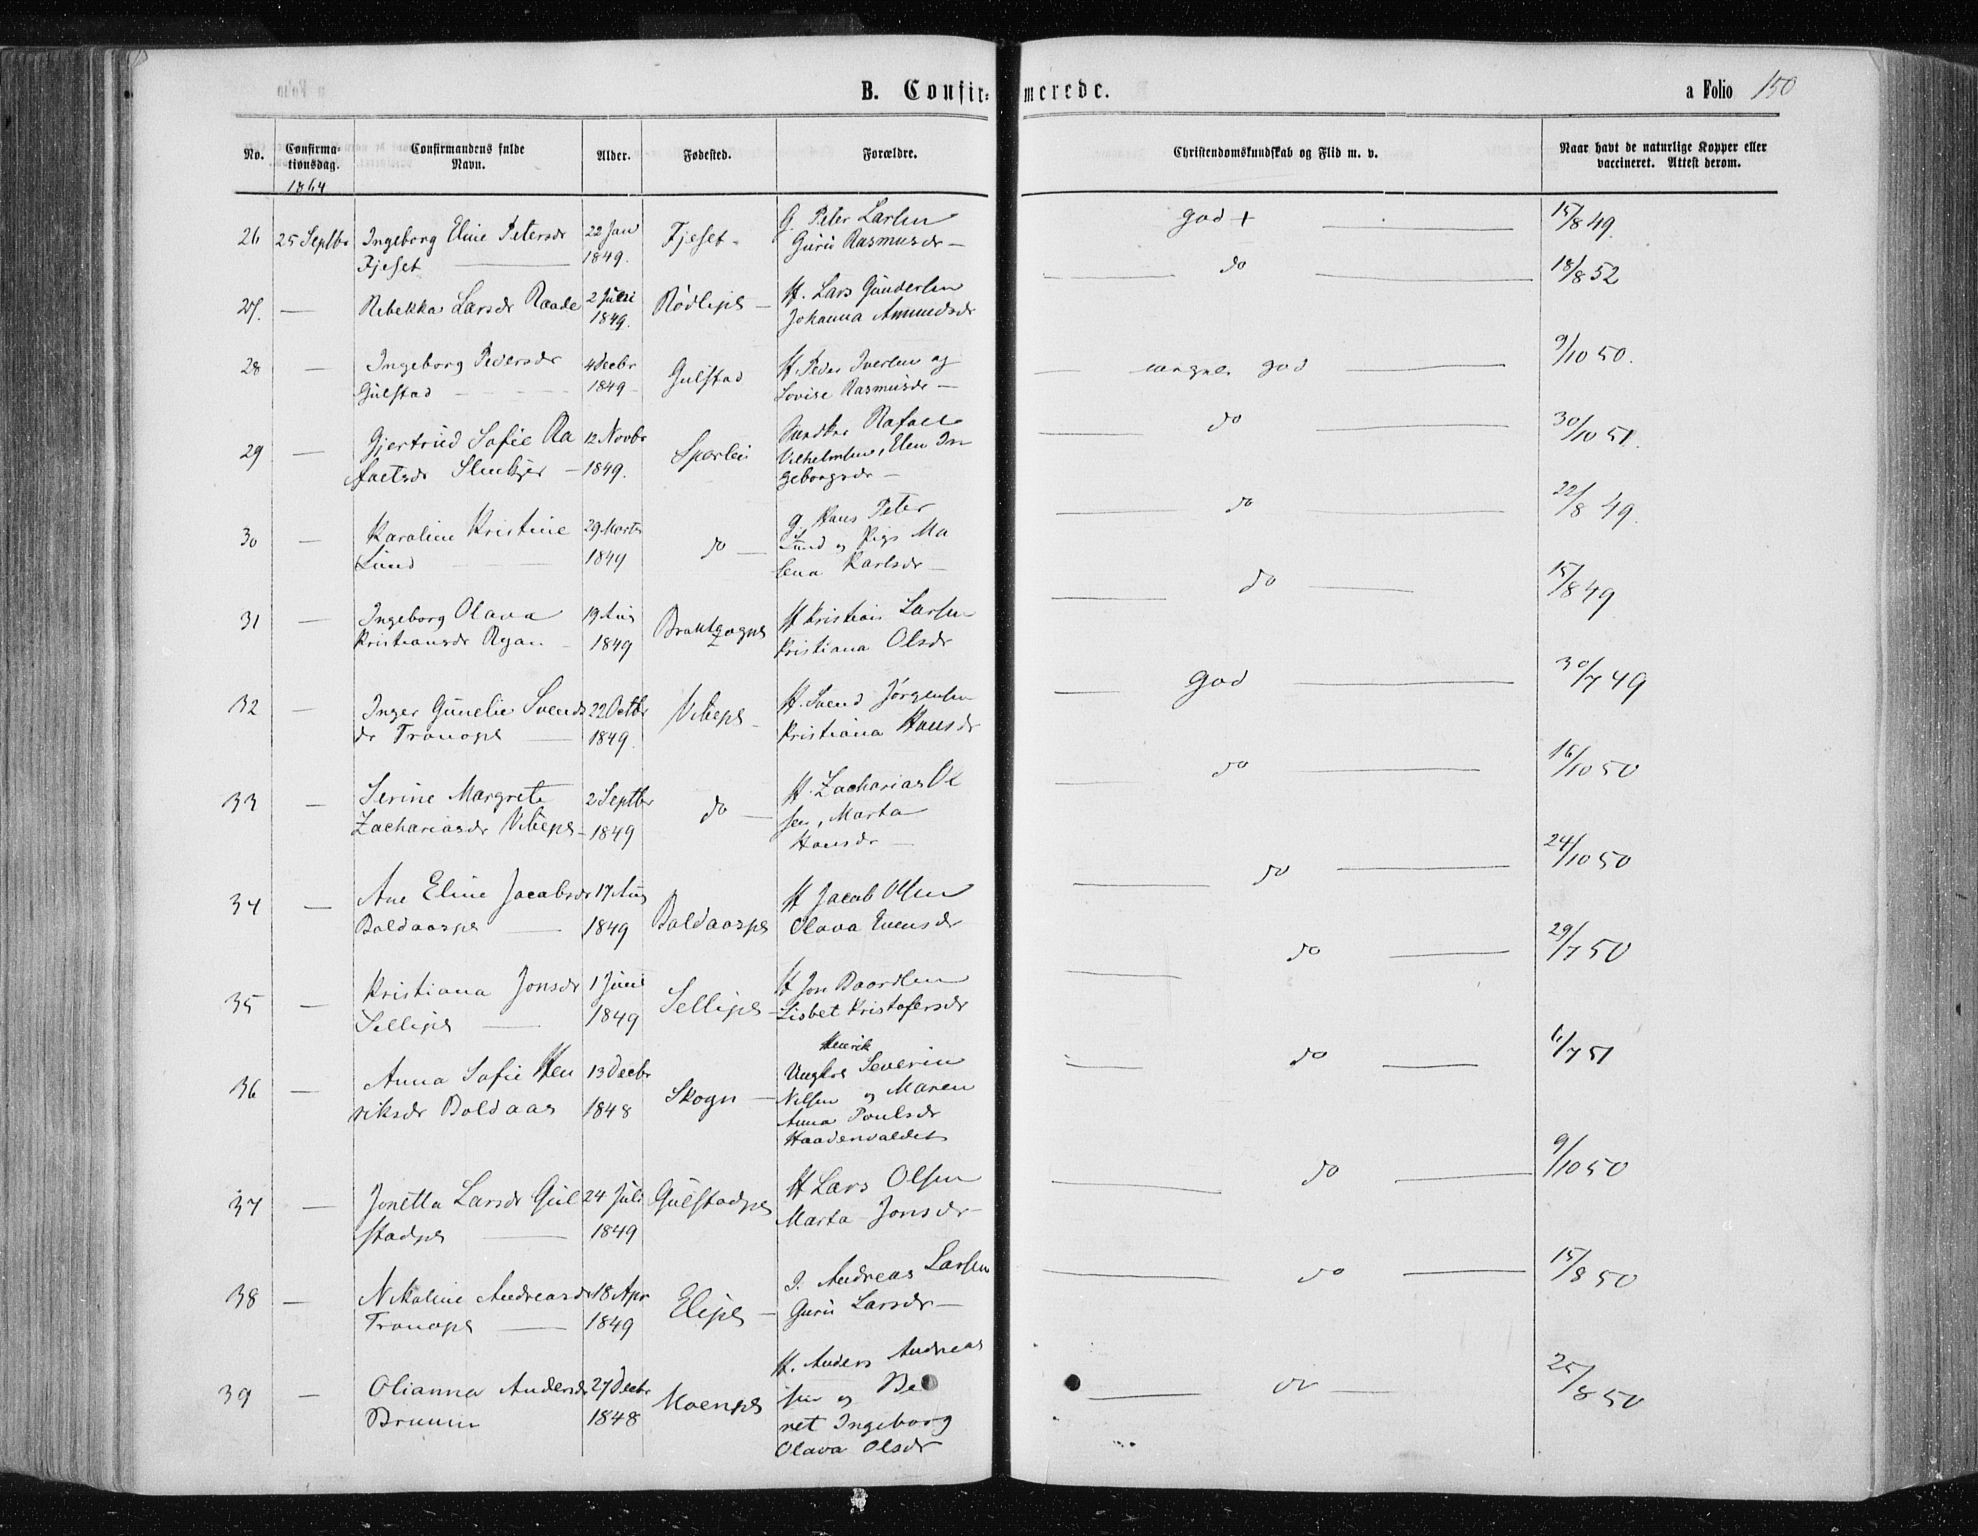 B. Confir-
merede.
a Folio 150
No.
Confirma-
tionsdag.
1864
Confirmandens fulde
Navn.
Alder.
Fødested.
Forældre.
Christendomskundskab og Flid m. v.
Naar havt de naturlige Kopper eller
vaccineret. Attest derom.
26 25 Septbr Ingeborg Eline Petersdr 22 Jan Fjeset G. Peter Larsen god + — 15/8 49.
Fjeset — 1849. Guru Rasmusdr —
27. — Rebekka Larsdr Raade 2 Juli Rødleps — H. Lars Gundersen — do — 18/8 52
1849. Johanna Amundsdr
28 — Ingeborg Pedersdr 4 Decbr Gulstad H. Peder Iversen og — god — 9/10 50.
Gulstad — 1849 — Lovise Rasmusdr —
29 — Gjertrud Sofie Ra 12 Novbr Rafael — do — 30/10 51.
faelsdr — 1849. Vilhelmsen, Elen In
geborgsdr —
30 — Karoline Kristine 29 Marts do — Hans Peter — do — 22/8 49.
Lund — 1849 Lund og Pige Ma
lena Karlsdr —
31 — Ingeborg Olava 19 Aug H Kristian Larsen — do — 15/8 49
Kristiansdr 1849 Kristiana Olsdr
32 — Inger Gunelie Svends 22 Octbr Vibeps — H. Svend Jørgensen — god — 30/7 49
dr Tronops — 1849. Kristiana Hansdr
33 — Serine Margrete 2 Septbr do — H. Zacharias Ol — do — 16/10 50
Zachariasdr Vibeps — 1849 sen, Marta
Hansdr —
34 — Ane Eline Jacobsdr 17 Aug Boldaasps H Jacob Olsen — do — 24/10 50
Boldaasps — 1849 Olava Evensdr
35 — Kristiana Jonsdr 1 Juni Selleps — H Jon Baardsen — do — 29/7 50
Selleps — 1849 Lisbet Kristofersdr
Henrik
36 — Anna Sofie Hen 13 Decbr Skogn — Ungkrl Severin — do — 6/7 51
riksdr Boldaas 1848 Nilsen og Maren
Anna Poulsdr
37 — Jonetta Larsdr Gul 24 Juli Gulstadps H Lars Olsen — do — 9/10 50
stadps — 1849 Marta Jonsdr
38 — Nikoline Andreasdr 18 Apr Elips — I. Andreas Larsen — do — 15/8 50
Tronops — 1849 Guru Larsdr —
39 — Olianna Andersdr 27 Decbr Moenps H. Anders Andreas — do — 25/8 50
Bruum 1848 sen og Be
ret Ingeborg
Olava Olsdr